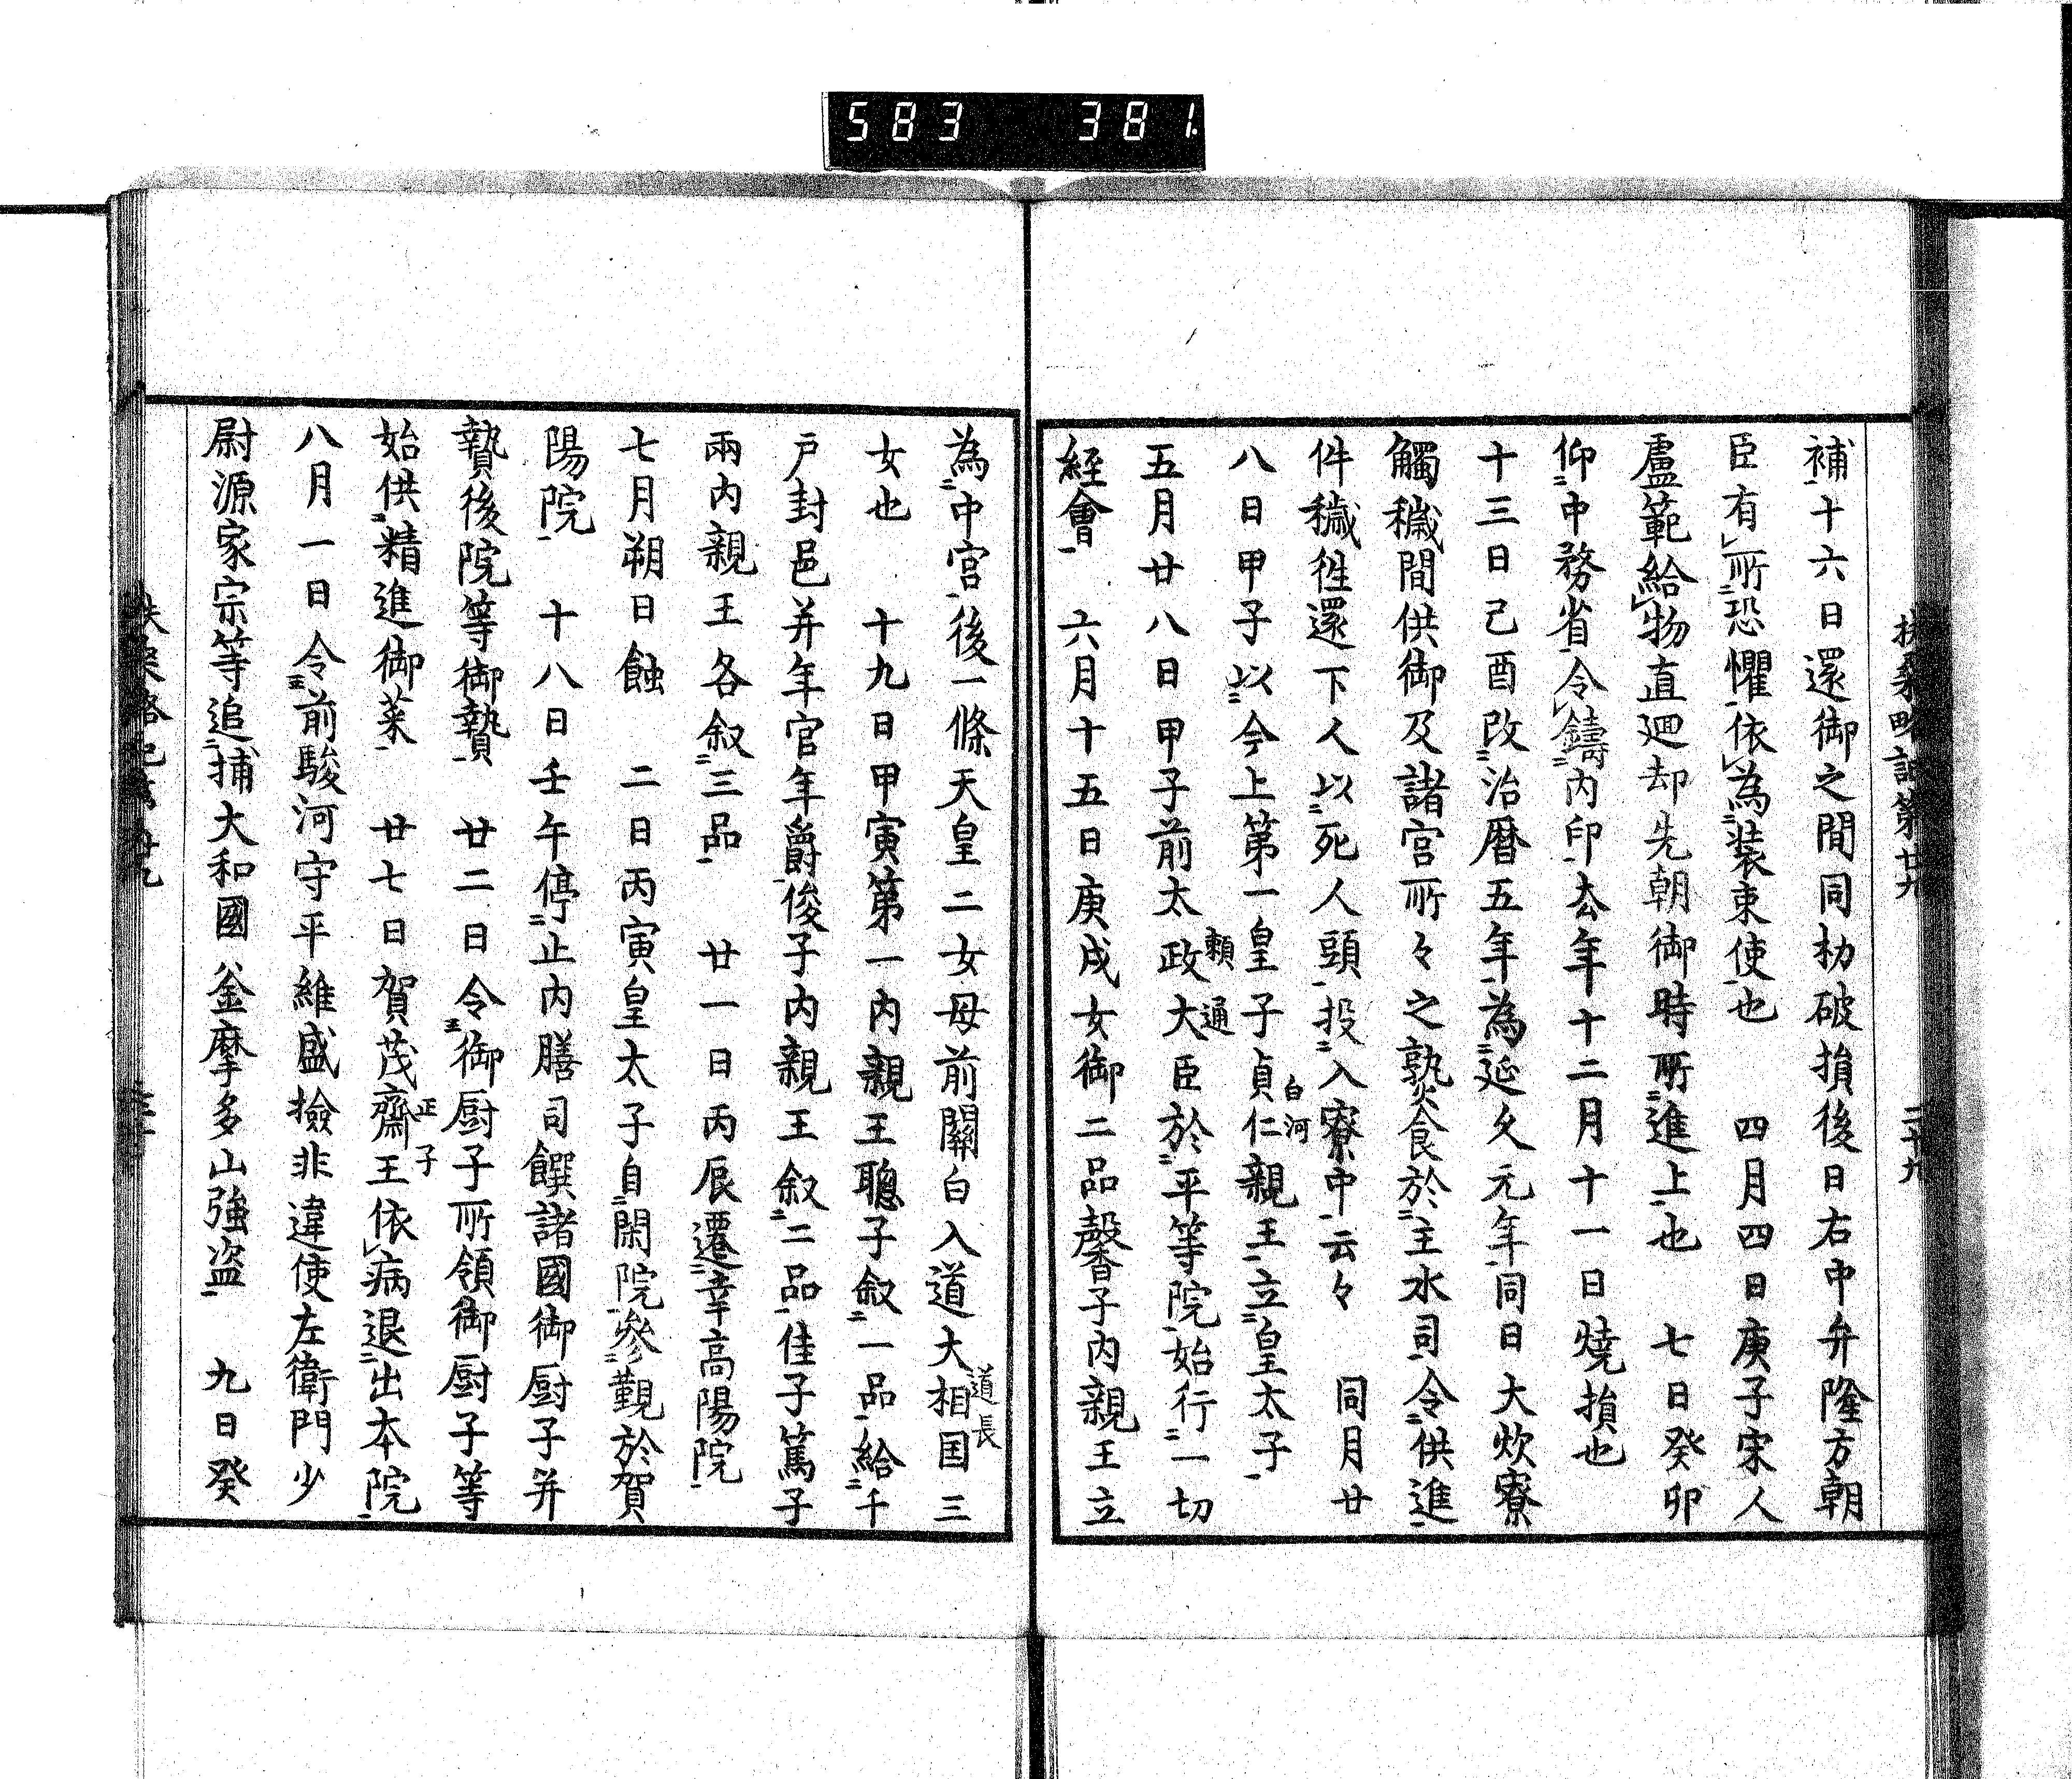 583 381
扶桑略記第廿九 二十九
補十六日還御之間同杒破損後日右中弁隆方朝
臣有所恐懼依為装束使也 四月四日庚子宋人
盧範給物直廻却先朝御時所進上也 七日癸卯
仰中務省令鑄内印去年十二月十一日燒損也
十三日己酉改治暦五年為延久元年同日大炊寮
觸穢間供御及諸宮所々之熟食於主水司令供進
件穢甡還下人以死人頭投入寮中云々 同月廿
八日甲子以今上第一皇子貞仁親王立皇太子
白河
五月廿八日甲子前太政大臣於平等院始行一切
頼通
經會 六月十五日庚戌女御二品馨子内親王立
為中宮後一條天皇二女母前關白入道大相国三
道長
女也 十九日甲寅第一内親王聰子叙一品給千
戸封邑并年官年爵俊子内親王叙二品佳子篤子
兩内親王各叙三品 廿一日丙辰遷幸高陽院
七月朔日蝕 二日丙寅皇太子自閑院參覲於賀
陽院 十八日壬午停止内膳司饌諸國御厨子并
贄後院等御贄 廿二日令御厨子所領御厨子等
始供精進御菜 廿七日賀茂齋王依病退出本院
正子
八月一日令前駿河守平維盛撿非違使左衛門少
尉源家宗等追捕大和國釜摩多山強盗 九日癸